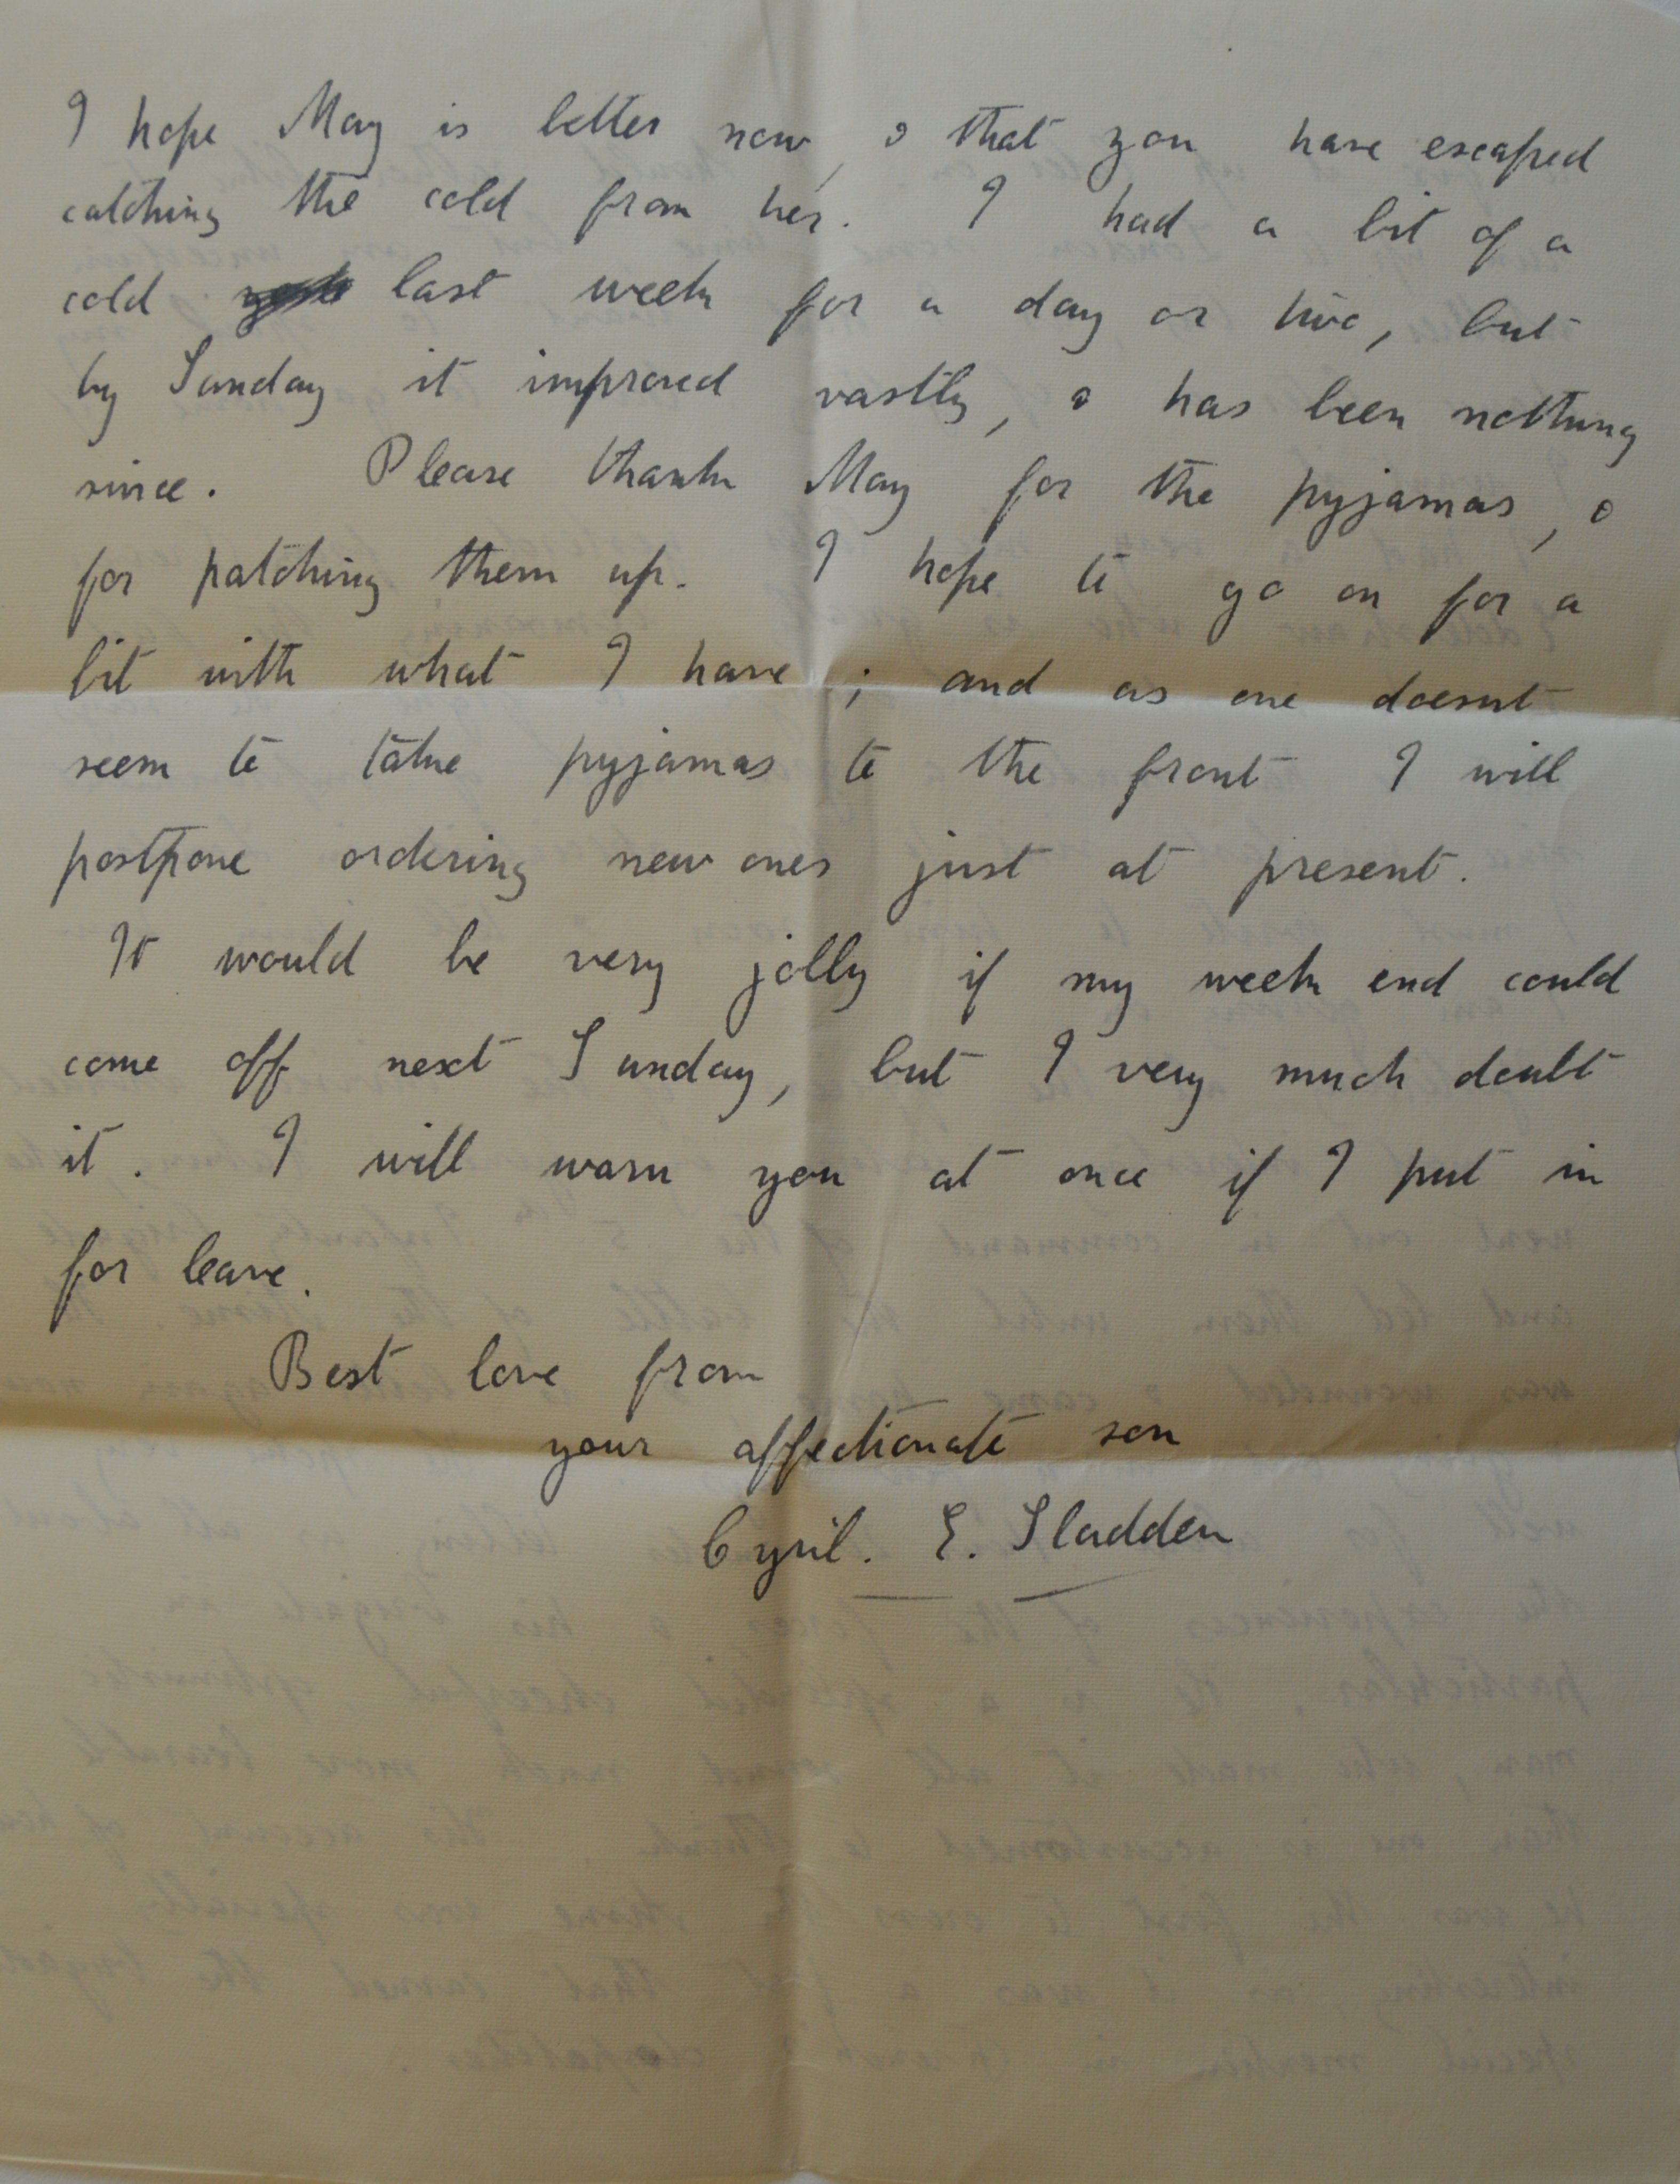 I hope May is better now, & that you have escaped
catching the cold from her. I had a bit of a
cold last week for a day or two, but
by Sunday it improved vastly, & has been nothing
since. Please thank May for the pyjamas, &
for patching them up. I hope to go on for a
bit with what I have; and as one doesnt
seem to take pyjamas to the front I will
postpone ordering new ones just at present.
It would be very jolly if my week end could
come off next Sunday, but I very much doubt
it. I will warn you at once if I put in
for leave.
Best love from
your affectionate son
Cyril. E. Sladden